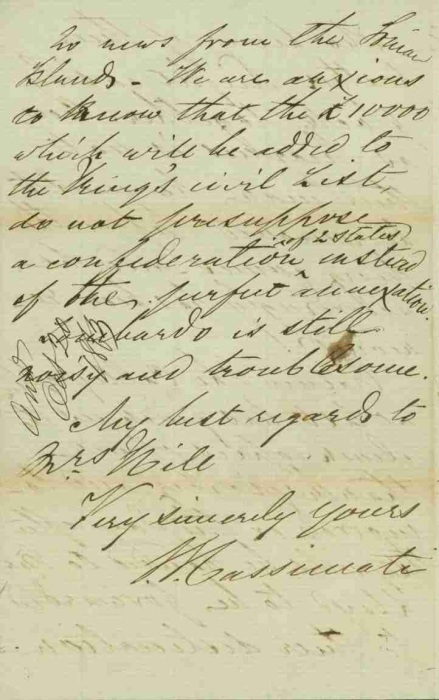 no news from the Ionian
Islands - We are anxious
to know that the £10000
which will be added to
the King's civil List,
do not presuppose
a confederation of 2 states instead
of the perfect annexation.
Lombardo is still
noisy and troublesome.
My best regards to
Mrs Hill
Very sincerely yours
Cassimati
Ansd
Oct 20